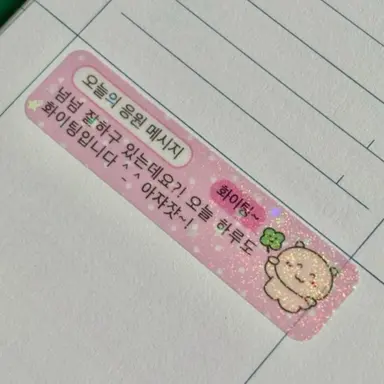 오늘의 응원 메시지
넘넘 잘하구 있는데요?! 오늘 하루도
화이팅입니다 ^_^ 아자쟛~!
화이팅~